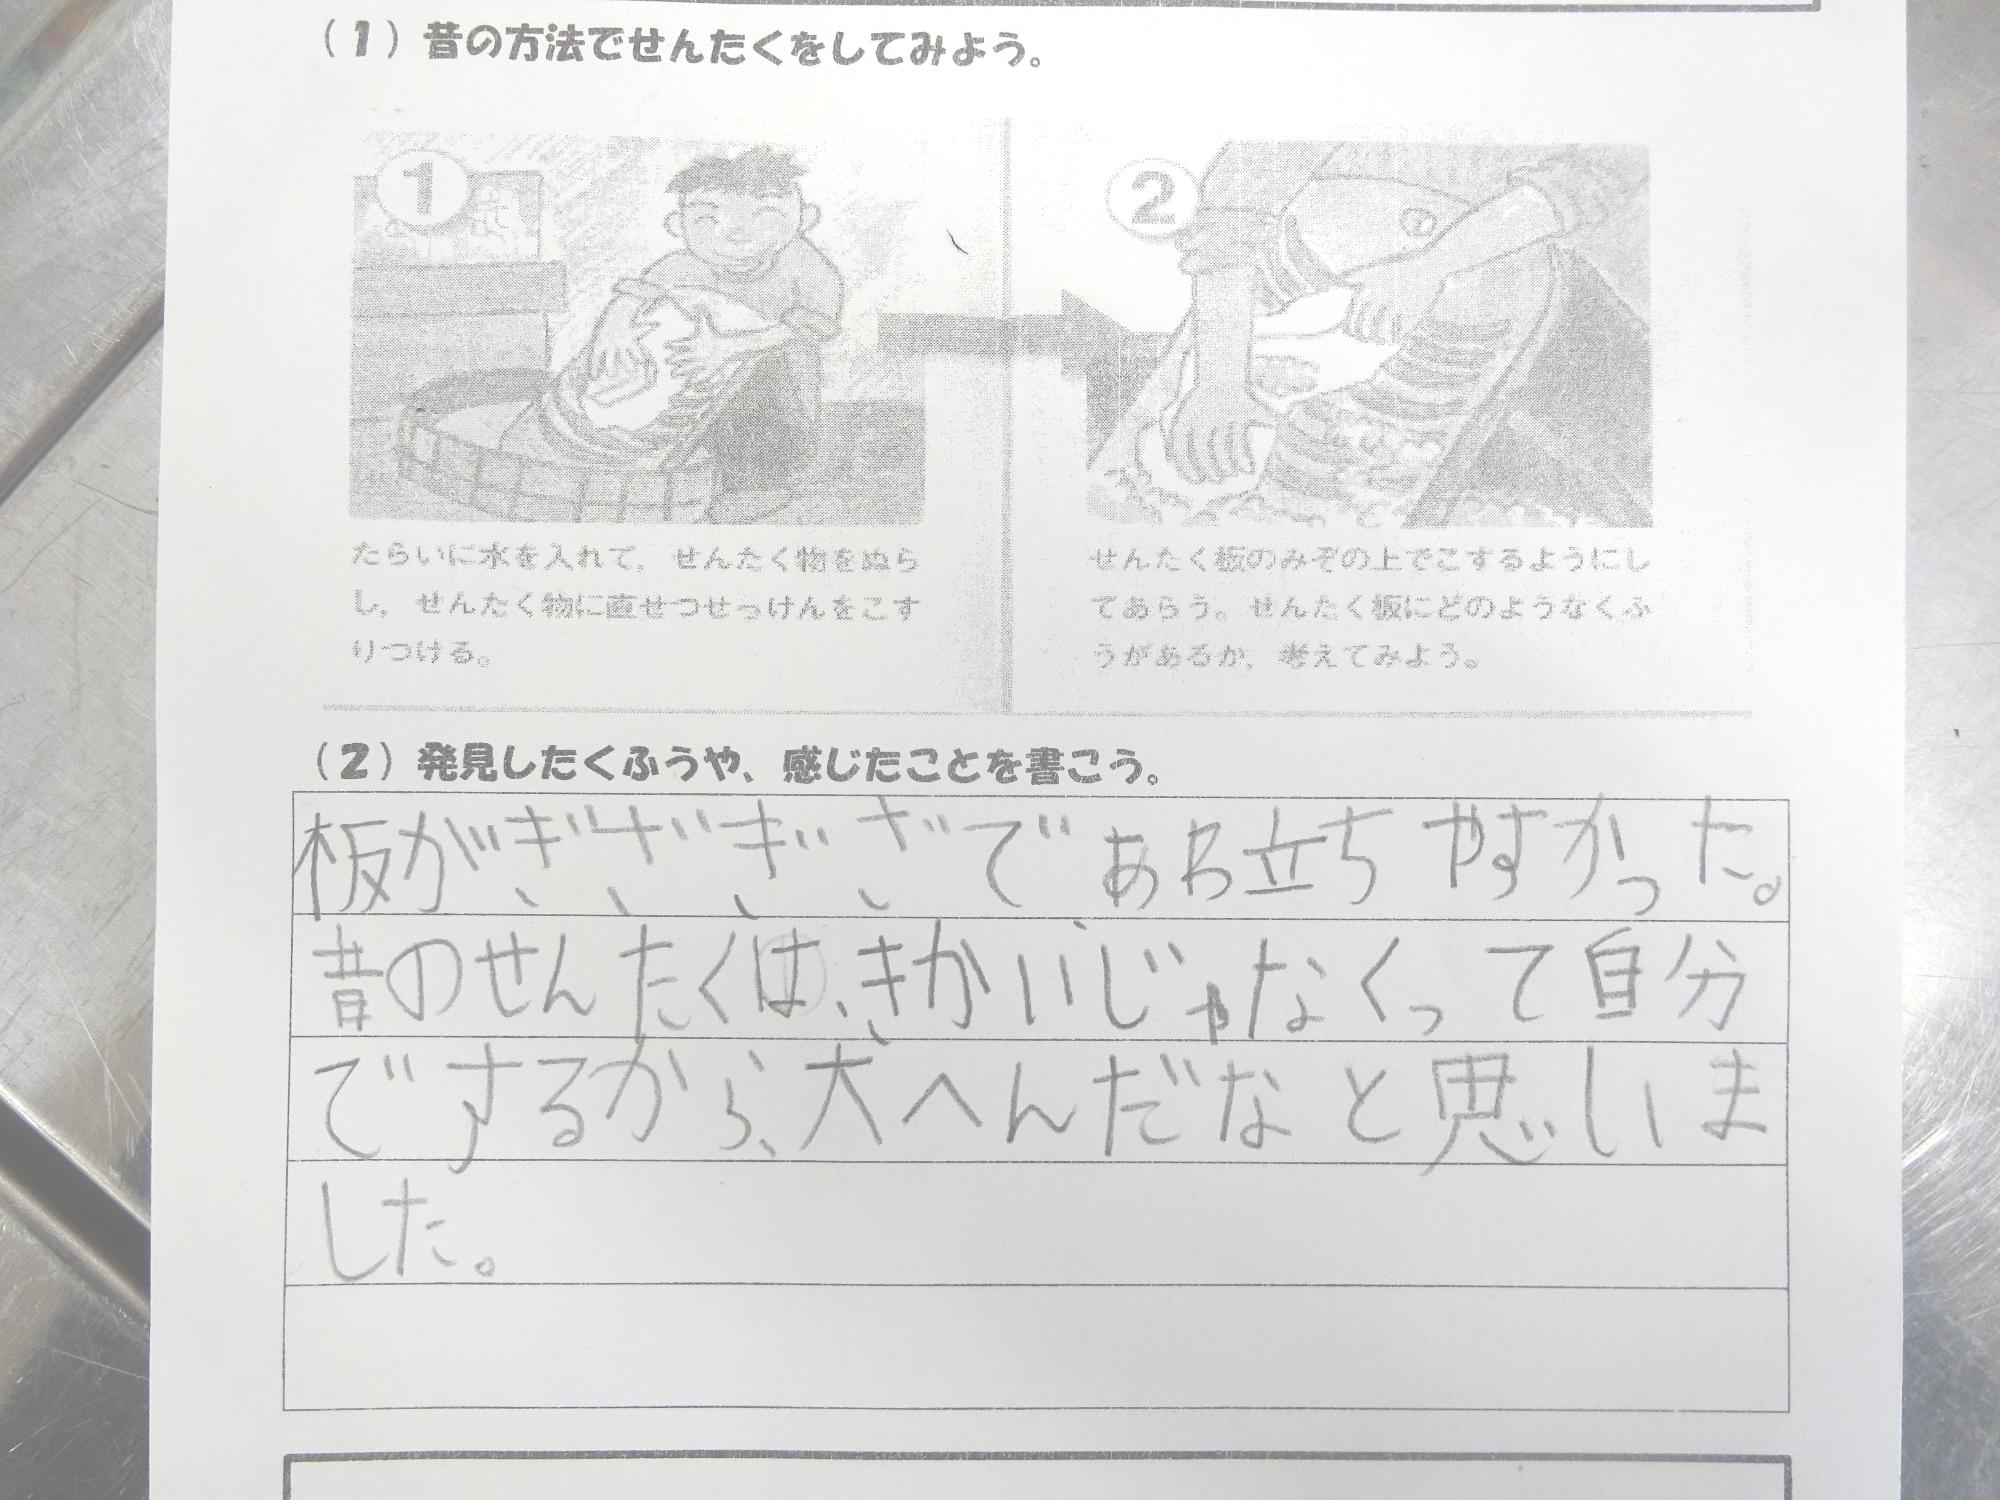 （1）昔の方法でせんたくをしてみよう。
1
2
たらいに水を入れて，せんたく物をぬら
し，せんたく物に直せつせっけんをこす
りつける。
せんたく板のみぞの上でこするようにし
てあらう。せんたく板にどのようなくふ
うがあるか，考えてみよう。
（2）発見したくふうや、感じたことを書こう。
板がぎざぎざであわ立ちやすかった。
昔のせんたくは、きかいじゃなくって自分
でするから、大へんだなと思いま
した。